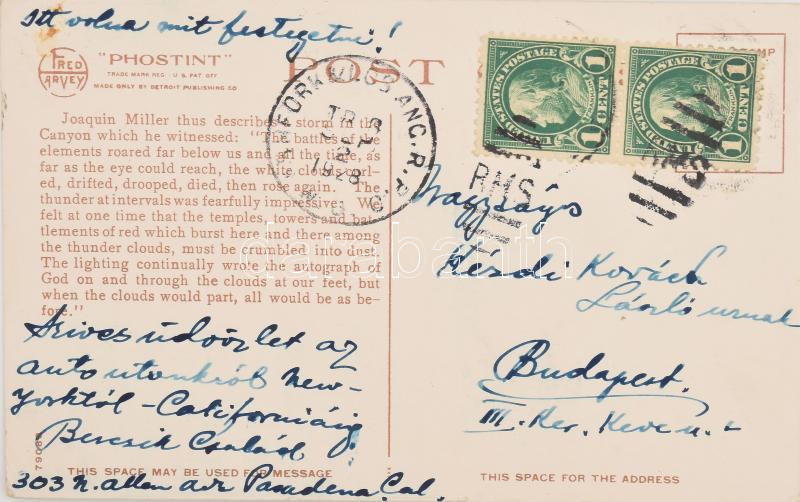 Itt volna mit festegetni!
FRED HARVEY
"PHOSTINT"
TRADE MARK REG. U.S. PAT. OFF.
MADE ONLY BY DETROIT PUBLISHING CO
POST
Joaquin Miller thus describes a storm in the
Canyon which he witnessed: "The battles of the
elements roared far below us and all the time, as
far as the eye could reach, the white clouds curl-
ed, drifted, drooped, died, then rose again. The
thunder at intervals was fearfully impressive. We
felt at one time that the temples, towers and bat-
tlements of red which burst here and there among
the thunder clouds, must be crumbled into dust.
The lighting continually wrote the autograph of
God on and through the clouds at our feet, but
when the clouds would part, all would be as be-
fore."
Szives üdvözlet az
auto utunkról New-
Yorktól - Californiáig
Bercsik Család
303 N. Allen ave Pasadena Cal.
79082
THIS SPACE MAY BE USED FOR MESSAGE
ANG. R.P.O.
TR 9
1928
RMS
UNITED STATES POSTAGE
1
UNITED STATES POSTAGE
1
RMS
Nagyságos
Kézdi Kovács
László urnak
Budapest.
III. Ker. Keve u. 2
THIS SPACE FOR THE ADDRESS
darabanth